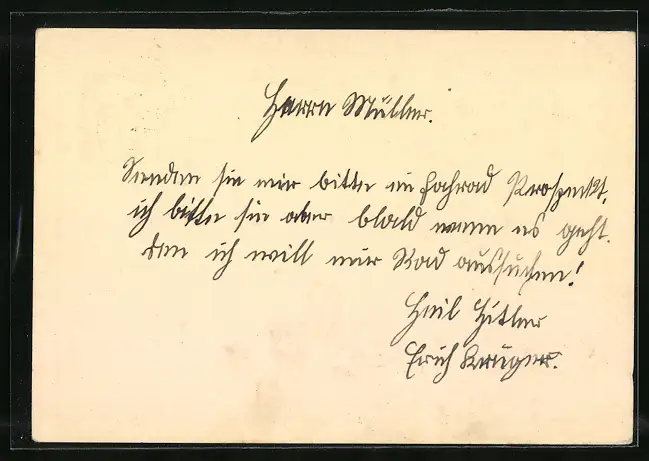 Herrn Müller.
Senden sie mir bitte ein Fahrad Prospeckt,
ich bitte sie aber blald wenn es geht.
den ich will mir Rad aussuchen!
Heil Hitler
Erich Krüger.